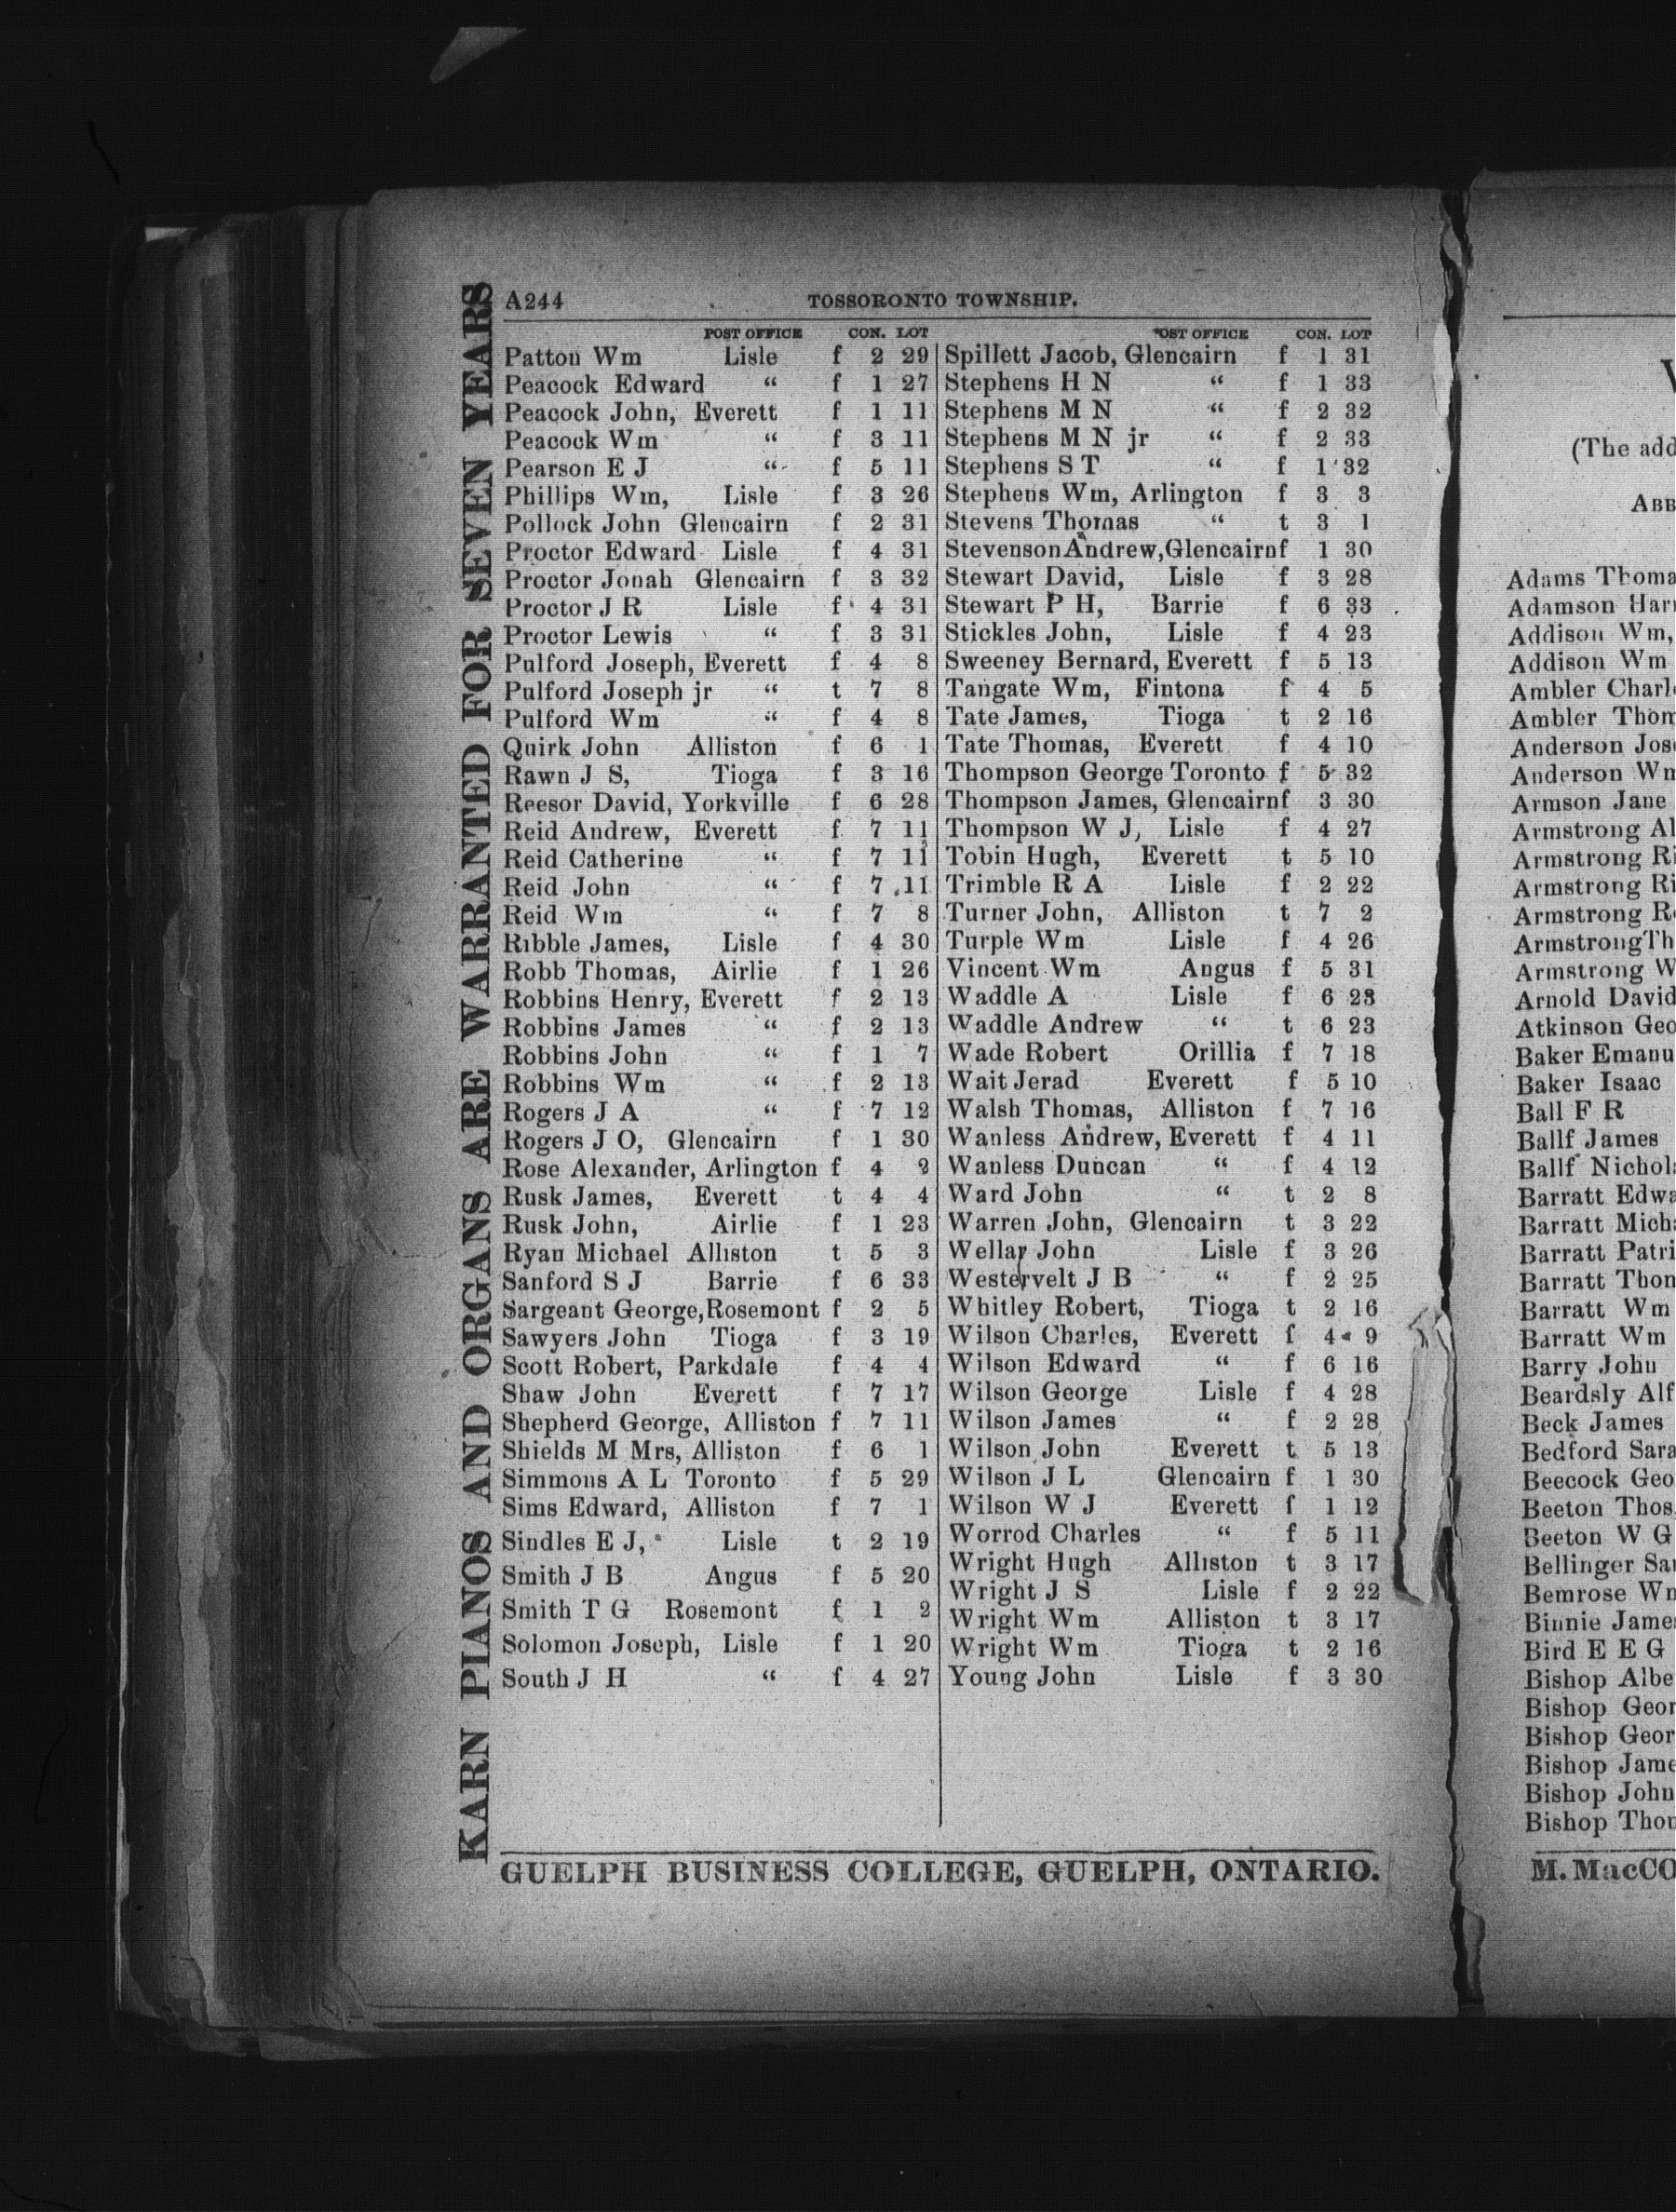 A244 TOSSORONTO TOWNSHIP.
POST OFFICE CON. LOT
Patton Wm Lisle f 2 29
Peacock Edward “ f 1 27
Peacock John, Everett f 1 11
Peacock Wm “ f 3 11
Pearson E J “ f 5 11
Phillips Wm, Lisle f 3 26
Pollock John Glencairn f 2 31
Proctor Edward Lisle f 4 31
Proctor Jonah Glencairn f 3 32
Proctor J R Lisle f 4 31
Proctor Lewis “ f 3 31
Pulford Joseph, Everett f 4 8
Pulford Joseph jr “ t 7 8
Pulford Wm “ f 4 8
Quirk John Alliston f 6 1
Rawn J S, Tioga f 3 16
Reesor David, Yorkville f 6 28
Reid Andrew, Everett f 7 11
Reid Catherine “ f 7 11
Reid John “ f 7 11
Reid Wm “ f 7 8
Ribble James, Lisle f 4 30
Robb Thomas, Airlie f 1 26
Robbins Henry, Everett f 2 13
Robbins James “ f 2 13
Robbins John “ f 1 7
Robbins Wm “ f 2 13
Rogers J A “ f 7 12
Rogers J O, Glencairn f 1 30
Rose Alexander, Arlington f 4 2
Rusk James, Everett t 4 4
Rusk John, Airlie f 1 23
Ryan Michael Alliston t 5 3
Sanford S J Barrie f 6 33
Sargeant George, Rosemont f 2 5
Sawyers John Tioga f 3 19
Scott Robert, Parkdale f 4 4
Shaw John Everett f 7 17
Shepherd George, Alliston f 7 11
Shields M Mrs, Alliston f 6 1
Simmons A L Toronto f 5 29
Sims Edward, Alliston f 7 1
Sindles E J, Lisle t 2 19
Smith J B Angus f 5 20
Smith T G Rosemont f 1 2
Solomon Joseph, Lisle f 1 20
South J H “ f 4 27
POST OFFICE CON. LOT
Spillett Jacob, Glencairn f 1 31
Stephens H N “ f 1 33
Stephens M N “ f 2 32
Stephens M N jr “ f 2 33
Stephens S T “ f 1 32
Stephens Wm, Arlington f 3 3
Stevens Thomas “ t 3 1
StevensonAndrew,Glencairnf 1 30
Stewart David, Lisle f 3 28
Stewart P H, Barrie f 6 33
Stickles John, Lisle f 4 23
Sweeney Bernard, Everett f 5 13
Tangate Wm, Fintona f 4 5
Tate James, Tioga t 2 16
Tate Thomas, Everett f 4 10
Thompson George Toronto f 5 32
Thompson James, Glencairnf 3 30
Thompson W J, Lisle f 4 27
Tobin Hugh, Everett t 5 10
Trimble R A Lisle f 2 22
Turner John, Alliston t 7 2
Turple Wm Lisle f 4 26
Vincent Wm Angus f 5 31
Waddle A Lisle f 6 23
Waddle Andrew “ t 6 23
Wade Robert Orillia f 7 18
Wait Jerad Everett f 5 10
Walsh Thomas, Alliston f 7 16
Wanless Andrew, Everett f 4 11
Wanless Duncan “ f 4 12
Ward John “ t 2 8
Warren John, Glencairn t 3 22
Wellar John Lisle f 3 26
Westervelt J B “ f 2 25
Whitley Robert, Tioga t 2 16
Wilson Charles, Everett f 4 9
Wilson Edward “ f 6 16
Wilson George Lisle f 4 28
Wilson James “ f 2 28
Wilson John Everett t 5 13
Wilson J L Glencairn f 1 30
Wilson W J Everett f 1 12
Worrod Charles “ f 5 11
Wright Hugh Alliston t 3 17
Wright J S Lisle f 2 22
Wright Wm Alliston t 3 17
Wright Wm Tioga t 2 16
Young John Lisle f 3 30
GUELPH BUSINESS COLLEGE, GUELPH, ONTARIO.
KARN PIANOS AND ORGANS ARE WARRANTED FOR SEVEN YEARS
(The add
ABB
Adams Thoma
Adamson Har
Addison Wm,
Addison Wm
Ambler Charl
Ambler Thom
Anderson Jos
Anderson Wm
Armson Jane
Armstrong Al
Armstrong Ri
Armstrong Ri
Armstrong R
ArmstrongTh
Armstrong W
Arnold David
Atkinson Geo
Baker Emanu
Baker Isaac
Ball F R
Ballf James
Ballf Nichol
Barratt Edwa
Barratt Mich
Barratt Patri
Barratt Thom
Barratt Wm
Barratt Wm
Barry John
Beardsly Alf
Beck James
Bedford Sara
Beecock Geo
Beeton Thos
Beeton W G
Bellinger Sa
Bemrose Wm
Binnie Jame
Bird E E G
Bishop Albe
Bishop Geor
Bishop Geor
Bishop Jame
Bishop John
Bishop Thom
M. MacCO